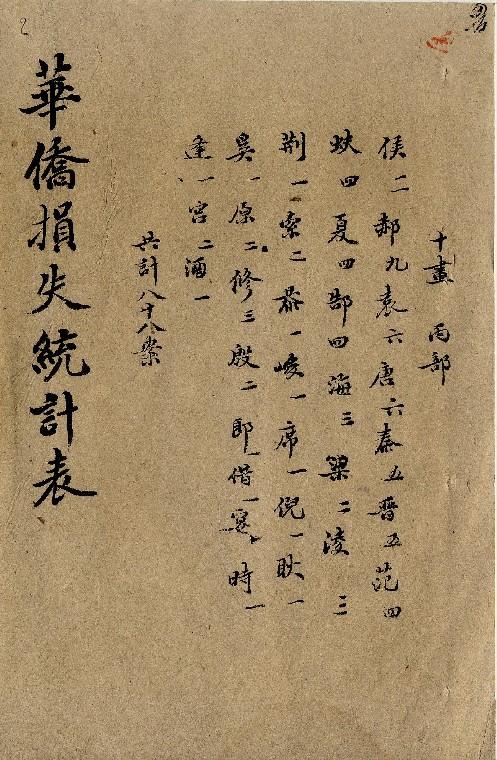 十畫 丙部
侯二郝九袁六唐六秦五晋五范四
四夏四郜四海三梁二凌三
荆一索二恭一峻一席一倪一耿一
吴一原二修三殷二即一借一宴一時一
逢一宮二酒一
共計八十八案
華僑損失統計表